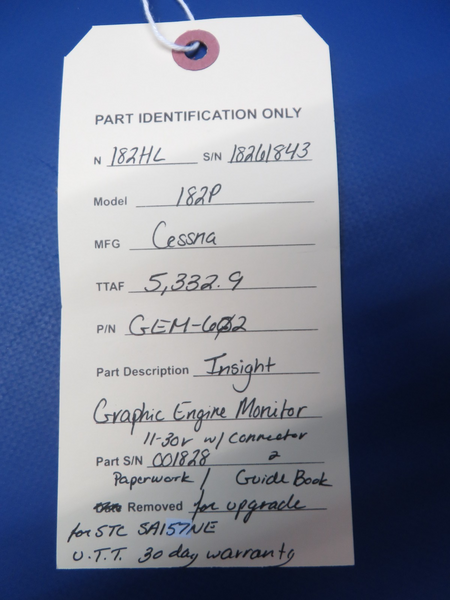 PART IDENTIFICATION ONLY
N 182HL S/N 18261843
Model 182P
MFG Cessna
TTAF 5,332.9
P/N GEM-602
Part Description Insight
Graphic Engine Monitor
11-30v w/ Connector
Part S/N 001828 2
Paperwork / Guide Book
Removed for upgrade
for STC SA157NE
U.T.T. 30 day warranty